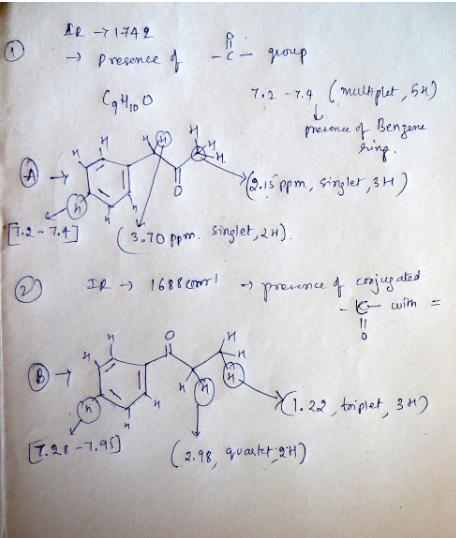 ① IR → 1742
→ Presence of -C- group
O
C9H10O
7.2 - 7.4 (multiplet, 5H)
↓
presence of Benzene
ring.
A →
H H H H H H
O
(2.15 ppm, singlet, 3H)
[7.2 - 7.4]
(3.70 ppm. singlet, 2H).
② IR → 1688 cm-1 → presence of conjugated
-C- with =
O
B →
H H H H H H
O
(1.22, triplet, 3H)
[7.28 - 7.95]
(2.98, quartet, 2H)